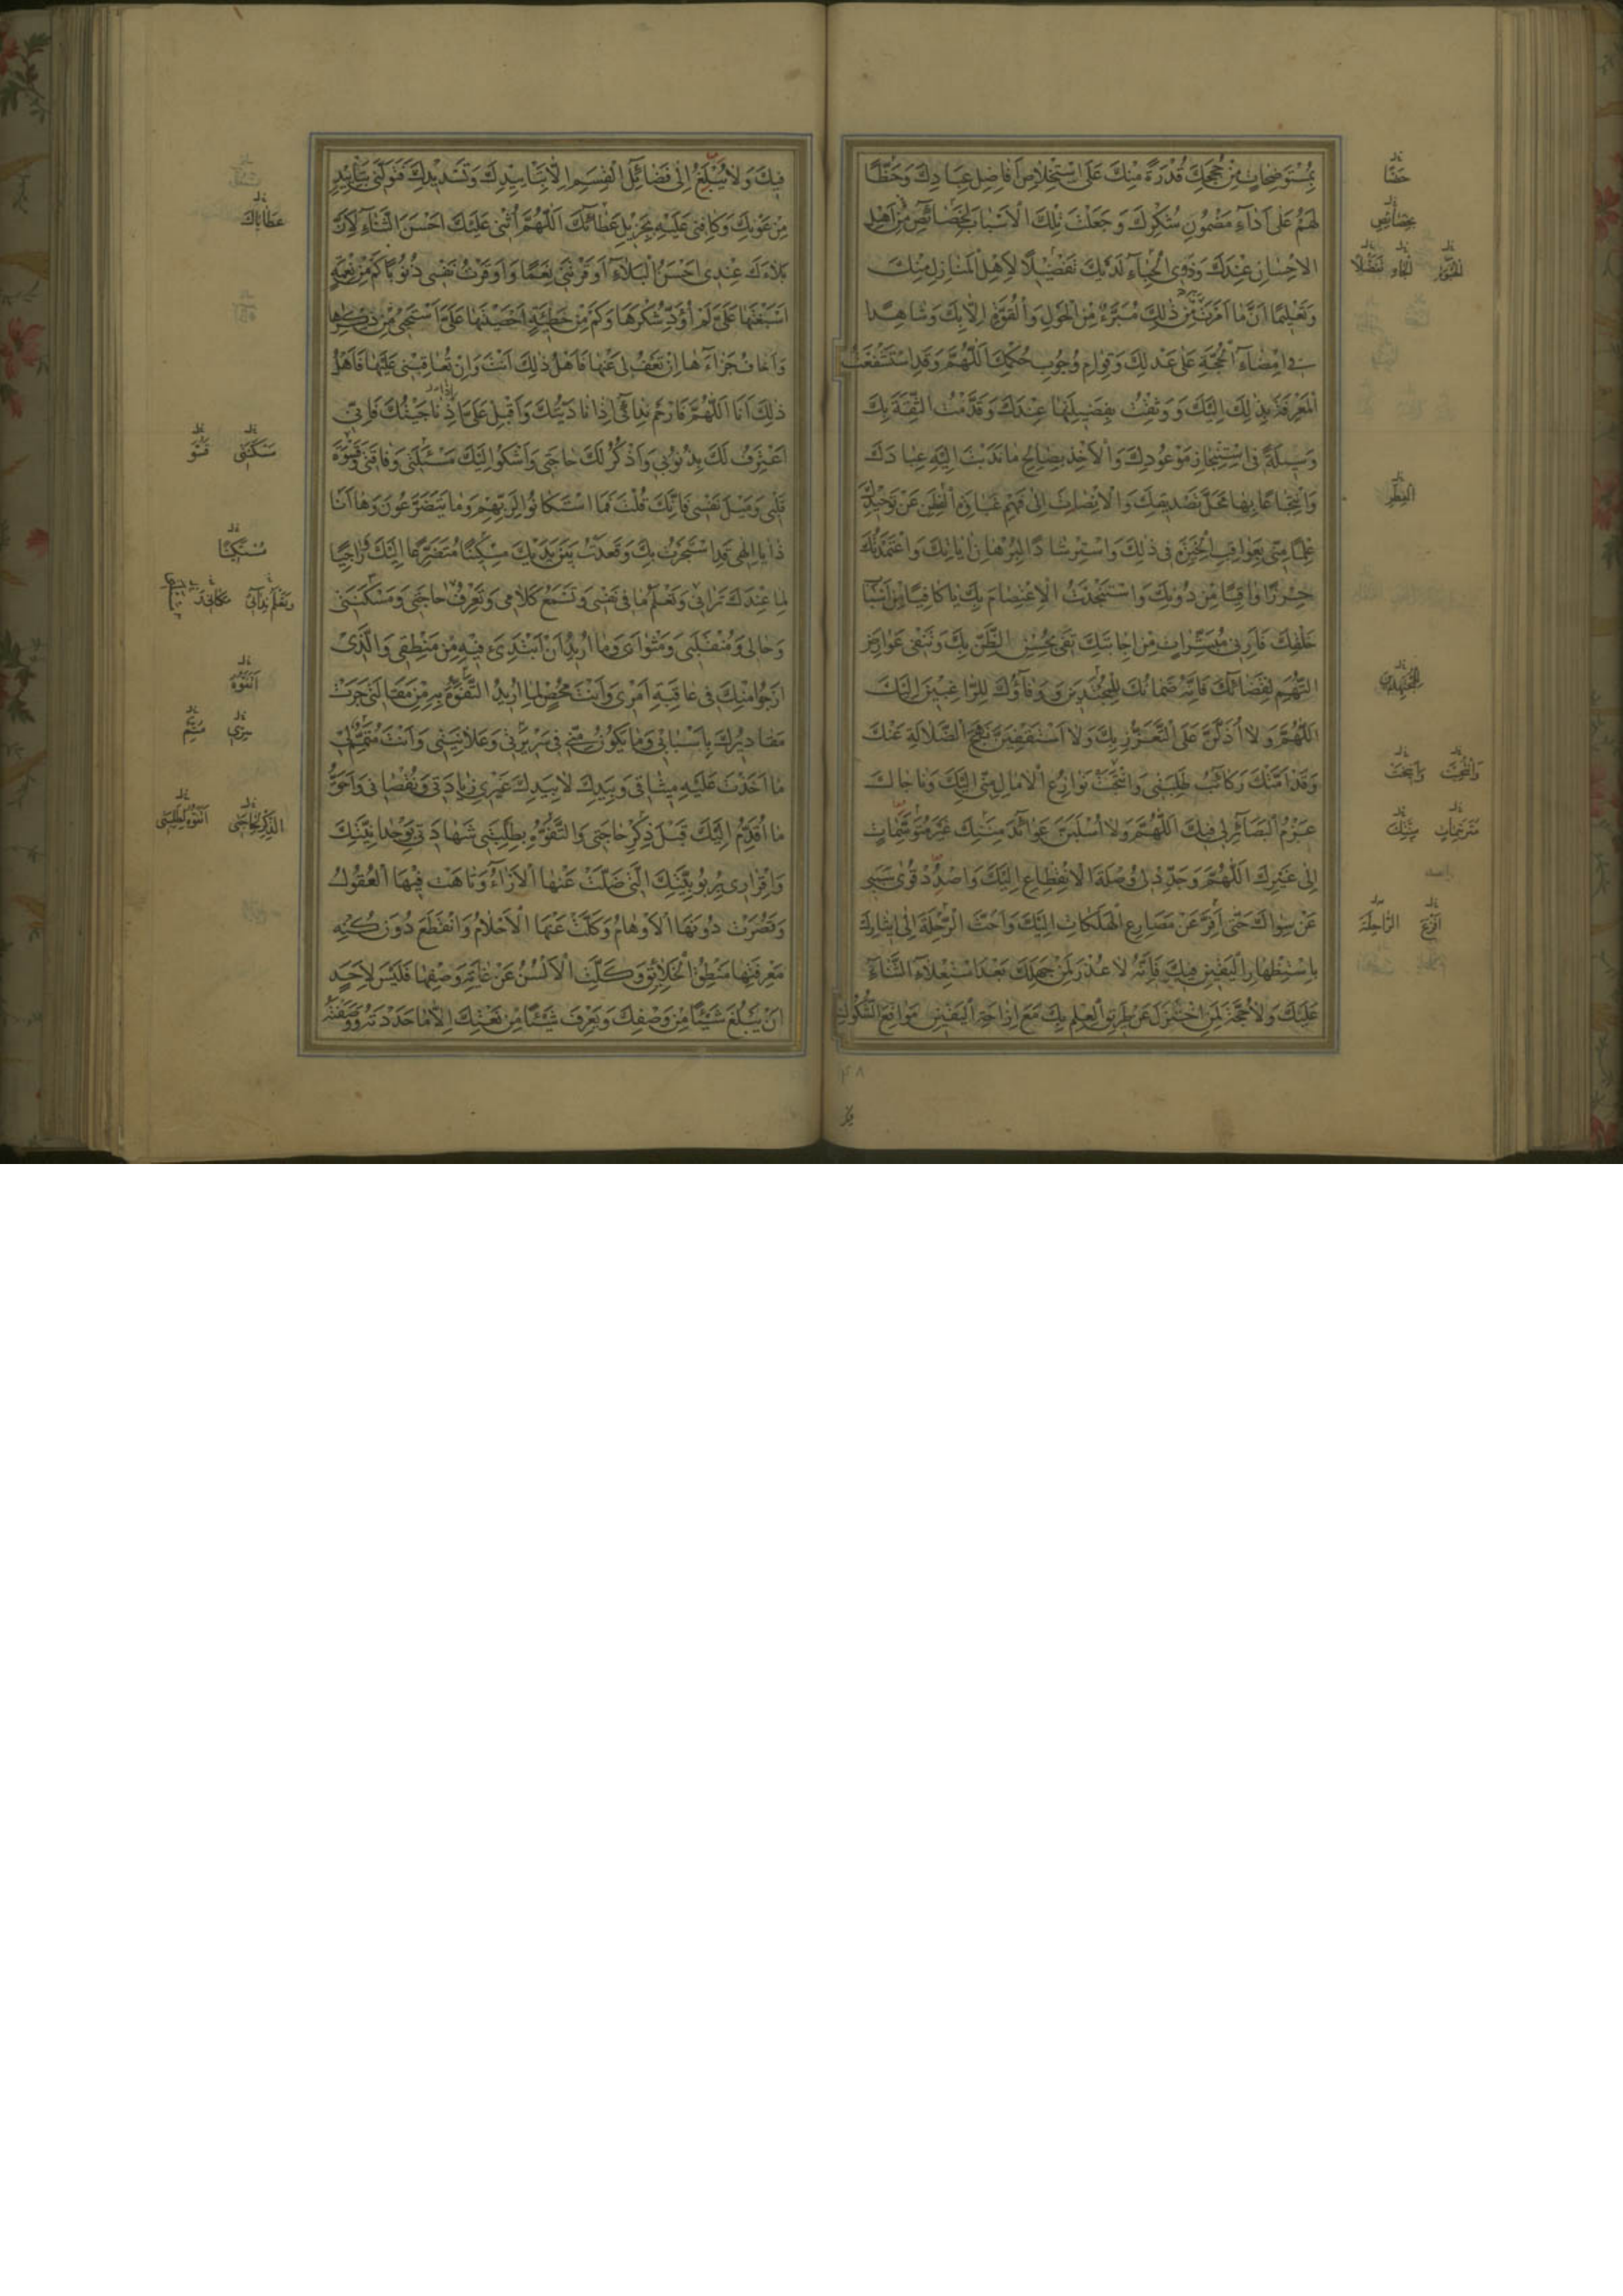 بِمُسْتَوضِحَاتٍ مِنْ حُجَجِكَ قُدْرَةً مِنْكَ عَلَى اسْتِخْلَاصِ أَفَاضِلِ عِبَادِكَ وَحَظًّا
لَهُمْ عَلَى أَدَآءِ مَضْمُونِ شُكْرِكَ وَجَعَلْتَ تِلْكَ الْأَسْبَابَ لِخَصَآئِصَ مِنْ أَهْلِ
الْاِحْسَانِ عِنْدَكَ وَذَوِي الْحِبَآءِ لَدَيْكَ تَفْضِيْلًا لِأَهْلِ الْمَنَازِلِ مِنْكَ
وَتَعْلِيمًا أَنَّ مَا أَمَرْتَ مِنْ ذٰلِكَ مُبَرَّءٌ مِنَ الْحَوْلِ وَالْقُوَّةِ إِلَّا بِكَ وَشَاهِدًا
فِي إِمْضَآءِ الْحُجَّةِ عَلَى عَدْلِكَ وَقِوَامِ وُجُوبِ حُكْمِكَ اَللّٰهُمَّ وَقَدِ اسْتَشْفَعْتُ
الْمَعْرِفَةَ بِذٰلِكَ إِلَيْكَ وَوَثِقْتُ بِفَضِيلَتِهَا عِنْدَكَ وَقَدَّمْتُ الثِّقَةَ بِكَ
وَسِيلَةً فِي اسْتِنْجَازِ مَوْعُودِكَ وَالْأَخْذِ بِصَالِحِ مَا نَدَبْتَ إِلَيْهِ عِبَادَكَ
وَانْتِجَاعًا بِهَا مَحَلَّ تَصْدِيقِكَ وَالْاِنْصَاتِ إِلَى فَهْمِ غَبَاوَةِ الْفِطَنِ عَنْ تَوْحِيدِكَ
عِلْمًا مِنِّي بِعَوَاقِبِ الْخِيَرَةِ فِي ذٰلِكَ وَاسْتِرْشَادًا لِبُرْهَانِ آيَاتِكَ وَاعْتَمَدْتُكَ
حِرْزًا وَاقِيًا مِنْ دُونِكَ وَاسْتَنْجَدْتُ الْاِعْتِصَامَ بِكَ يَا كَافِيًا مِنْ أَسْبَابِ
خَلْقِكَ فَأَرِنِي مُبَشِّرَاتٍ مِنْ إِجَابَتِكَ تَفِي بِحُسْنِ الظَّنِّ بِكَ وَتَنْفِي عَوَارِضَ
التُّهَمِ لِقَضَائِكَ فَإِنَّهُ ضَمَانُكَ لِلْمُجْتَدِينَ وَوَفَآؤُكَ لِلرَّاغِبِينَ إِلَيْكَ
اَللّٰهُمَّ وَلَا أَذِلَّنَّ عَلَى التَّعَزُّزِ بِكَ وَلَا أَسْتَقْفِيَنَّ نَهْجَ الضَّلَالَةِ عَنْكَ
وَقَدْ أَمَّتْكَ رَكَائِبُ طَلِبَتِي وَأُنِيخَتْ نَوَازِعُ الْآمَالِ مِنِّي إِلَيْكَ وَنَاجَاكَ
عَزْمُ الْبَصَآئِرِ لِي فِيكَ اَللّٰهُمَّ وَلَا أُسْلَبَنَّ عَوَآئِدَ مِنَنِكَ غَيْرَ مُتَوَسِّمَاتٍ
إِلَى غَيْرِكَ اَللّٰهُمَّ وَجَدِّدْ لِي وُصْلَةَ الْاِنْقِطَاعِ إِلَيْكَ وَاصْدُدْ قُوَى سَبَبِي
عَنْ سِوَاكَ حَتَّى أَفِرَّ عَنْ مَصَارِعِ الْهَلَكَاتِ إِلَيْكَ وَأَحُثَّ الرِّحْلَةَ إِلَى إِيثَارِكَ
بِاسْتِظْهَارِ الْيَقِينِ فِيكَ فَإِنَّهُ لَا عُذْرَ لِمَنْ جَهِلَكَ بَعْدَ اسْتِعْلَآءِ الثَّنَآءِ
عَلَيْكَ وَلَا حُجَّةَ لِمَنِ اخْتُزِلَ عَنْ طَرِيقِ الْعِلْمِ بِكَ مَعَ إِزَاحَةِ الْيَقِينِ مَوَاقِعَ الشُّكُوكِ
فِيكَ وَلَا يُبْلَغُ إِلَى فَضَائِلِ الْقِسَمِ إِلَّا بِتَأْيِيدِكَ وَتَسْدِيْدِكَ فَتَوَلَّنِي بِتَأْيِيدٍ
مِنْ عَوْنِكَ وَكَافِنِي عَلَيْهِ بِجَزِيلِ عَطَائِكَ اَللّٰهُمَّ أُثْنِي عَلَيْكَ أَحْسَنَ الثَّنَآءِ لِأَنَّ
بَلَآءَكَ عِنْدِي أَحْسَنُ الْبَلَآءِ أَوْقَرْتَنِي نِعَمًا وَأَوْقَرْتُ نَفْسِي ذُنُوبًا كَمْ مِنْ نِعْمَةٍ
أَسْبَغْتَهَا عَلَيَّ لَمْ أُؤَدِّ شُكْرَهَا وَكَمْ مِنْ خَطِيئَةٍ أَحْصَيْتَهَا عَلَيَّ أَسْتَحْيِي مِنْ ذِكْرِهَا
وَأَخَافُ جَزَآءَهَا إِنْ تَعْفُ لِي عَنْهَا فَأَهْلُ ذٰلِكَ أَنْتَ وَإِنْ تُعَاقِبْنِي عَلَيْهَا فَأَهْلُ
ذٰلِكَ أَنَا اَللّٰهُمَّ فَارْحَمْ نِدَآئِي إِذَا نَادَيْتُكَ وَأَقْبِلْ عَلَيَّ إِذَا نَاجَيْتُكَ فَإِنِّي
أَعْتَرِفُ لَكَ بِذُنُوبِي وَأَذْكُرُ لَكَ حَاجَتِي وَأَشْكُو إِلَيْكَ مَسْئَلَتِي وَفَاقَتِي وَقَسْوَةَ
قَلْبِي وَمَيْلَ نَفْسِي فَإِنَّكَ قُلْتَ فَمَا اسْتَكَانُوا لِرَبِّهِمْ وَمَا يَتَضَرَّعُونَ وَهَا أَنَا
ذَا يَا إِلٰهِي قَدِ اسْتَجَرْتُ بِكَ وَقَعَدْتُ بَيْنَ يَدَيْكَ مِسْكِينًا مُتَضَرِّعًا إِلَيْكَ رَاجِيًا
لِمَا عِنْدَكَ تَرَانِي وَتَعْلَمُ مَا فِي نَفْسِي وَتَسْمَعُ كَلَامِي وَتَعْرِفُ حَاجَتِي وَمَسْكَنَتِي
وَحَالِي وَمُنْقَلَبِي وَمَثْوَايَ وَمَا أُرِيدُ أَنْ أَبْتَدِئَ فِيهِ مِنْ مَنْطِقِي وَالَّذِي
أَرْجُو مِنْكَ فِي عَاقِبَةِ أَمْرِي وَأَنْتَ مُحْصٍ لِمَا أُرِيدُ التَّفَوُّهَ بِهِ مِنْ مَقَالَتِي جَرَتْ
مَقَادِيرُكَ بِأَسْبَابِي وَمَا يَكُونُ مِنِّي فِي سَرِيرَتِي وَعَلَانِيَتِي وَأَنْتَ مُتَمِّمٌ لِي
مَا أَخَذْتَ عَلَيْهِ مِيثَاقِي وَبِيَدِكَ لَا بِيَدِ غَيْرِكَ زِيَادَتِي وَنُقْصَانِي وَأَحَقُّ
مَا أُقَدِّمُ إِلَيْكَ قَبْلَ ذِكْرِ حَاجَتِي وَالتَّفَوُّهِ بِطَلِبَتِي شَهَادَتِي بِوَحْدَانِيَّتِكَ
وَإِقْرَارِي بِرُبُوبِيَّتِكَ الَّتِي ضَلَّتْ عَنْهَا الْآرَآءُ وَتَاهَتْ فِيهَا الْعُقُولُ
وَقَصُرَتْ دُونَهَا الْأَوْهَامُ وَكَلَّتْ عَنْهَا الْأَحْلَامُ وَانْقَطَعَ دُونَ كُنْهِ
مَعْرِفَتِهَا مَنْطِقُ الْخَلَائِقِ وَكَلَّتِ الْأَلْسُنُ عَنْ غَايَةِ وَصْفِهَا فَلَيْسَ لِأَحَدٍ
أَنْ يَبْلُغَ شَيْئًا مِنْ وَصْفِكَ وَيَعْرِفَ شَيْئًا مِنْ نَعْتِكَ إِلَّا مَا حَدَدْتَهُ وَوَصَفْتَهُ